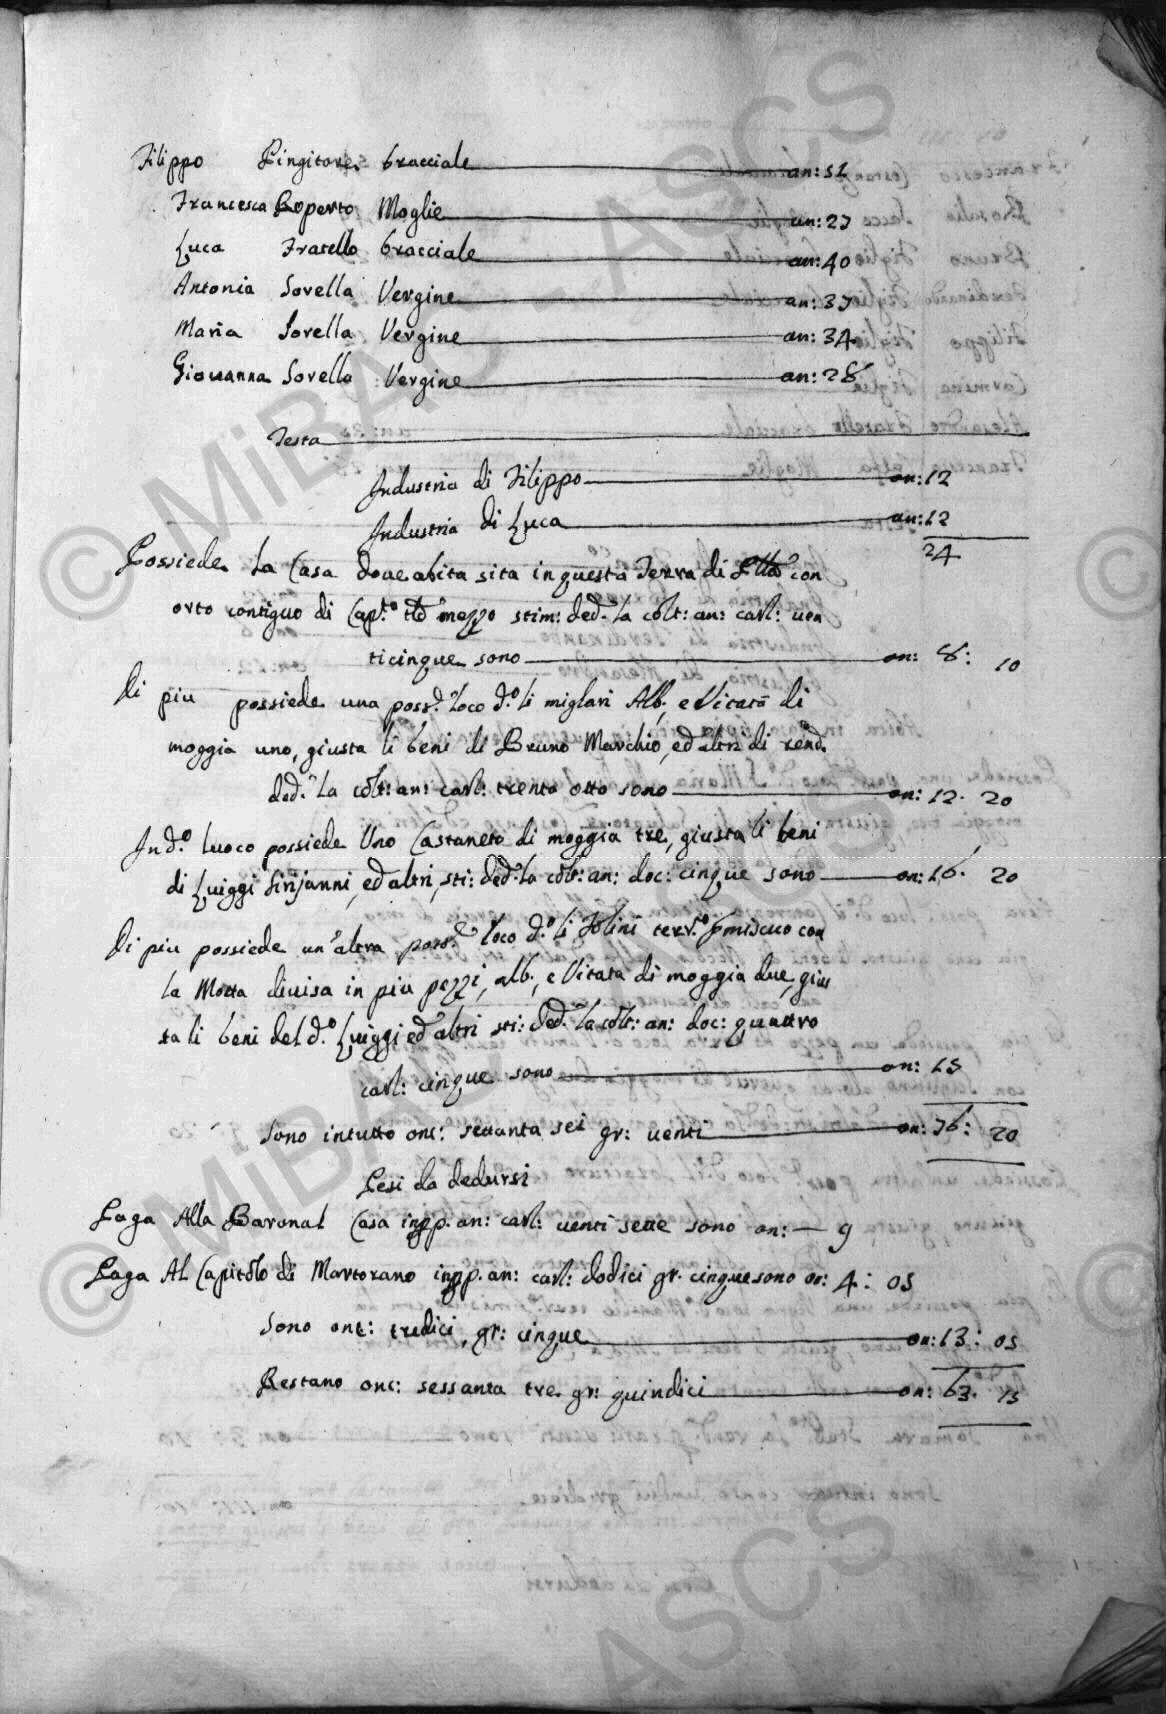 Filippo Pingitore bracciale an: 51
Francesca Roperto Moglie an: 27
Luca Fratello bracciale an: 40
Antonia Sorella Vergine an: 37
Maria Sorella Vergine an: 34
Giovanna Sorella Vergine an: 28
Testa
Industria di Filippo on: 12
Industria di Luca on: 12
24
Possiede La Casa doue abita sita in questa Terra di con
orto contiguo di mezzo stim: ded.ª La colt: an: carl: uen
ticinque sono on: 8: 10
Di piu possiede una poss.e loco d.º li miglari Alb: e Vitata di
moggia uno, giusta li beni di Bruno Marchio, ed altri di rend.
ded.ª La colt: an: carl: trenta otto sono on: 12. 20
In d.º luoco possiede Uno Castaneto di moggia tre, giusta li beni
di Luiggi Sirjanni, ed altri, sti: ded.ª La colt: an: doc: cinque sono on: 16. 20
Di piu possiede un'altra poss.e loco d.º li Folini terr.º pmiscuo con
La Motta diuisa in piu pezzi, alb:, e Vitata di moggia due, gius
ta li beni del d.º Luiggi ed altri sti: ded.ª La colt: an: doc: quattro
carl: cinque sono on: 15
Sono intutto onc: settanta sei gr: uenti on: 76: 20
Pesi da dedursi
Paga Alla Baronal Casa in pp. an: carl: uenti sette sono on: 9
Paga Al Capitolo di Martorano in pp. an: carl: dodici gr. cinque sono on: 4: 05
Sono onc: tredici, gr: cinque on: 13: 05
Restano onc: sessanta tre gr: quindici on: 63. 15
© MiBAC - ASCS
© MiBAC - ASCS
ASCS
©
©